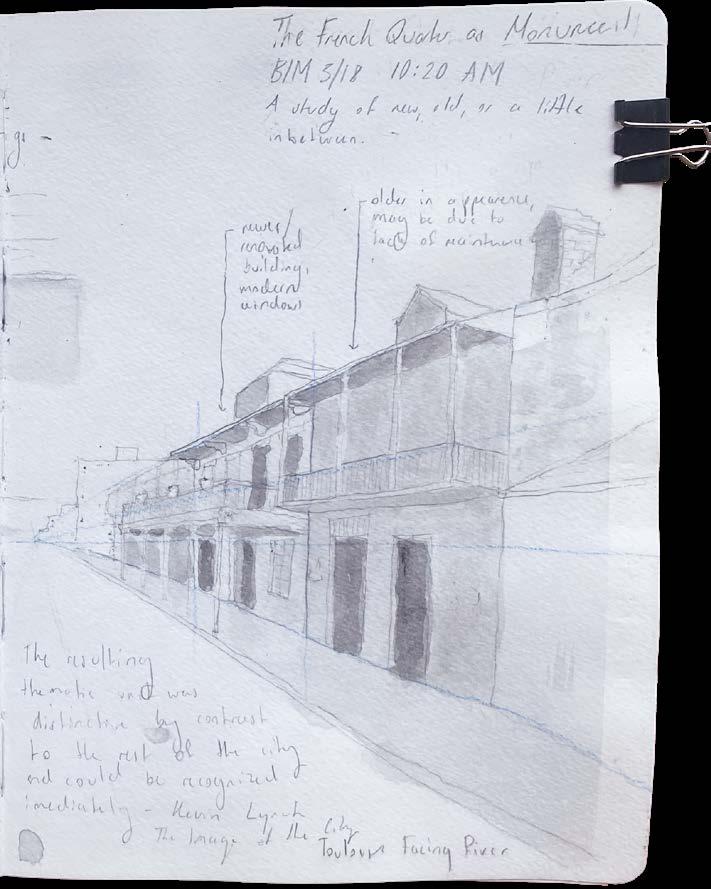 The French Quater as Monument
BIM 3/18 10:20 AM
A study of new, old, or a little
inbetween.
gs
newer/
renovated
building,
modern
windows
older in appearence,
may be due to
lack of maintnence
The resulting
thematic unit was
distinctive by contrast
to the rest of the city
and could be recognized
imediately - Kevin Lynch
The Image of the City
Toulouse Facing River